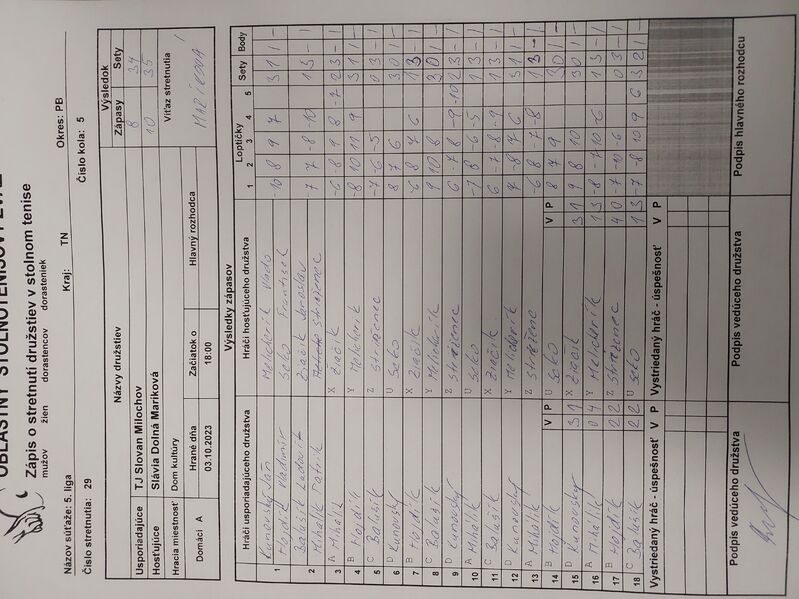 OBLASTNÝ STOLNOTENISOVÝ ZVÄZ
Zápis o stretnutí družstiev v stolnom tenise
mužov žien dorastencov dorasteniek
Názov súťaže: 5. liga Kraj: TN Okres: PB
Číslo stretnutia: 29 Číslo kola: 5
Názvy družstiev Výsledok
Zápasy Sety
Usporiadajúce TJ Slovan Milochov 8 34
Hosťujúce Slávia Dolná Mariková 10 35
Hracia miestnosť Dom kultúry Víťaz stretnutia
Domáci A Hrané dňa Začiatok o Hlavný rozhodca
03.10.2023 18:00
MARÍKOVÁ
Výsledky zápasov
Hráči usporiadajúceho družstva Hráči hosťujúceho družstva Loptičky Sety Body
1 2 3 4 5
1 Kunovský Ján Melicherík Vlado -10 8 9 7 3 1 1 -
Hojdík Vladimír Seko František
2 Balušík Ľudovít Žiačik Jaroslav -7 7 -8 -10 1 3 - 1
Mihálik Patrik Strašenec
3 A Mihálik X Žiačik -6 -8 9 8 -7 2 3 - 1
4 B Hojdík Y Melicherík -8 10 11 9 3 1 1 -
5 C Balušík Z Strašenec -7 -6 -5 0 3 - 1
6 D Kunovský U Seko 8 7 6 3 0 1 -
7 B Hojdík X Žiačik 1 3 - 1
8 C Balušík Y Melicherík 9 10 8 3 0 1 -
9 D Kunovský Z Strašenec 6 -7 8 -9 -10 2 3 - 1
10 A Mihálik U Seko -7 8 -6 -5 1 3 - 1
11 C Balušík X Žiačik 6 -7 -8 -9 1 3 - 1
12 D Kunovský Y Melicherík 7 -8 7 6 3 1 1 -
13 A Mihálik Z Strašenec -6 8 -7 -8 1 3 - 1
14 B Hojdík V P U Seko V P 8 7 9 3 0 1 -
15 D Kunovský 3 1 X Žiačik 3 1 9 8 10 3 0 1 -
16 A Mihálik 0 4 Y Melicherík 1 3 -8 -7 10 -6 1 3 - 1
17 B Hojdík 2 2 Z Strašenec 4 0 -7 -10 -6 0 3 - 1
18 C Balušík 2 2 U Seko 1 3 -7 -8 10 9 6 3 2 1
Vystriedaný hráč - úspešnosť V P Vystriedaný hráč - úspešnosť V P
Podpis vedúceho družstva Podpis vedúceho družstva Podpis hlavného rozhodcu